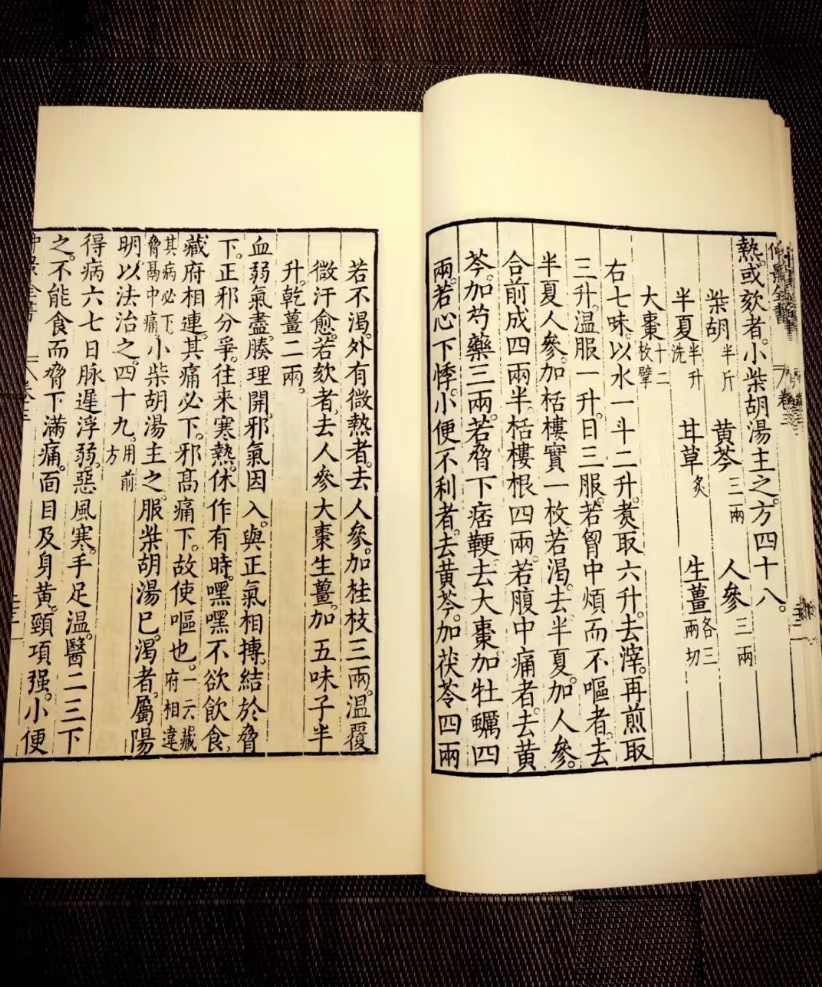 熱。或欬者。小柴胡湯主之。方四十八。
柴胡半斤 黃芩三兩 人參三兩
半夏半升洗 甘草炙 生薑各三兩切
大棗十二枚擘
右七味。以水一斗二升。煑取六升。去滓。再煎取
三升。溫服一升。日三服。若胷中煩而不嘔者。去
半夏人參。加栝樓實一枚。若渴。去半夏。加人參。
合前成四兩半。栝樓根四兩。若腹中痛者。去黃
芩。加芍藥三兩。若脅下痞鞕。去大棗。加牡蠣四
兩。若心下悸。小便不利者。去黃芩。加茯苓四兩
若不渴。外有微熱者。去人參。加桂枝三兩。溫覆
微汗愈。若欬者。去人參大棗生薑。加五味子半
升。乾薑二兩。
血弱氣盡。腠理開。邪氣因入。與正氣相摶。結於脅
下。正邪分爭。往来寒熱。休作有時。嘿嘿不欲飲食。
藏府相連。其痛必下。邪髙痛下。故使嘔也。一云藏府相違
其病必下脅鬲中痛小柴胡湯主之。服柴胡湯已。渴者。屬陽
明。以法治之。四十九。用前方
得病六七日。脉遲浮弱。惡風寒。手足溫。醫二三下
之。不能食。而脅下滿痛。面目及身黃。頸項强。小便
卷三